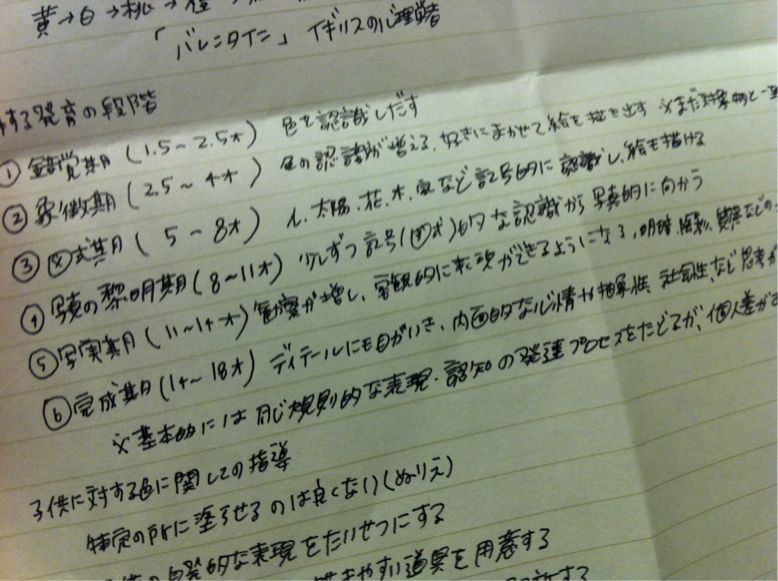 黄→白→桃→橙→
「バレンタイン」 イギリスの心理学者
する発育の段階
① 錯覚期 (1.5～2.5才) 色を認識しだす
② 象徴期 (2.5～4才) 色の認識が増える、好きにまかせて絵を描き出す ※まだ対象物と一
③ 図式期 ( 5～8才) 人、太陽、花、木、家など記号的に認識し、絵を描ける
④ 写実の黎明期 (8～11才) 少しずつ記号(図式)的な認識から写実的に向かう
⑤ 写実期 (11～14才) 観察が増し、客観的に表現ができるようになる、明暗、陰影、質感などの
⑥ 完成期 (14～18才) ディテールにも目がいき、内面的な心情や抽象性、社会性、など思考が
※基本的には同じ規則的な表現・認知の発達プロセスをたどるが、個人差が
子供に対する色に関しての指導
特定の所に塗らせるのは良くない(ぬりえ)
自発的な表現をたいせつにする
やすい道具を用意する
する